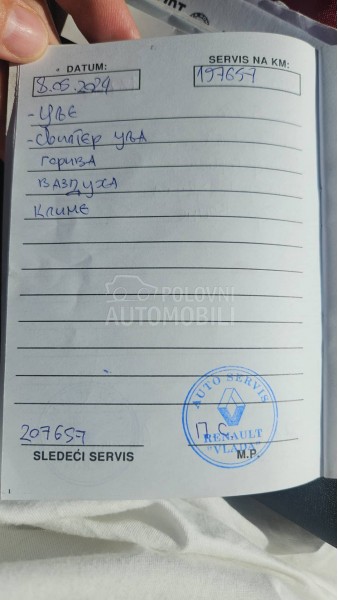 DATUM:
SERVIS NA KM:
8.05.2024
197657
- УЉЕ
- ФИЛТЕР УЉА
ГОРИВА
ВАЗДУХА
КЛИМЕ
POLOVNI
AUTOMOBILI
AUTO SERVIS
П.С.
RENAULT
"VLADA"
207657
SLEDEĆI SERVIS
M.P.